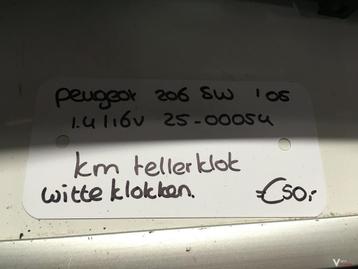 Peugeot 206 SW '05
1.4 16V 25-00054
km tellerklok
witte klokken. €50,-